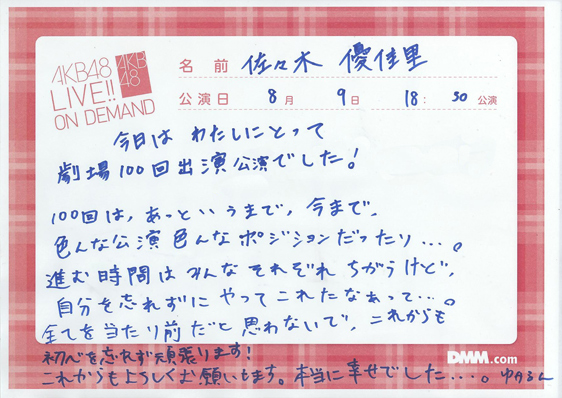 AKB48
LIVE!!
ON DEMAND
AKB
48
名前 佐々木 優佳里
公演日 8月 9日 18:30公演
今日は わたしにとって
劇場100回出演公演でした!
100回は、あっというまで、今まで、
色んな公演色んなポジションだったり...。
進む時間はみんなそれぞれちがうけど、
自分を忘れずにやってこれたなあって...。
全てを当たり前だと思わないで、これからも
初心を忘れず頑張ります!
これからもよろしくお願いします。本当に幸せでした....。ゆうるん
DMM.com